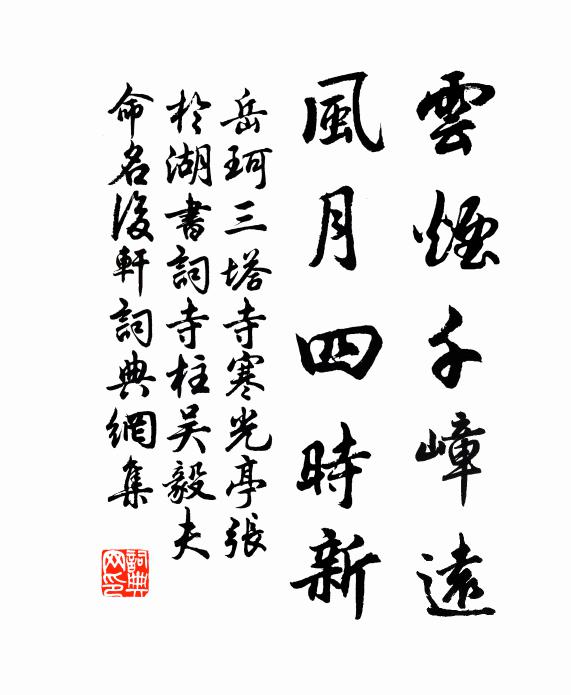 雲煙千嶂遠
風月四時新
岳珂三塔寺寒光亭張
於湖書詞寺柱吴毅夫
命名後軒詞典網集
詞典网印